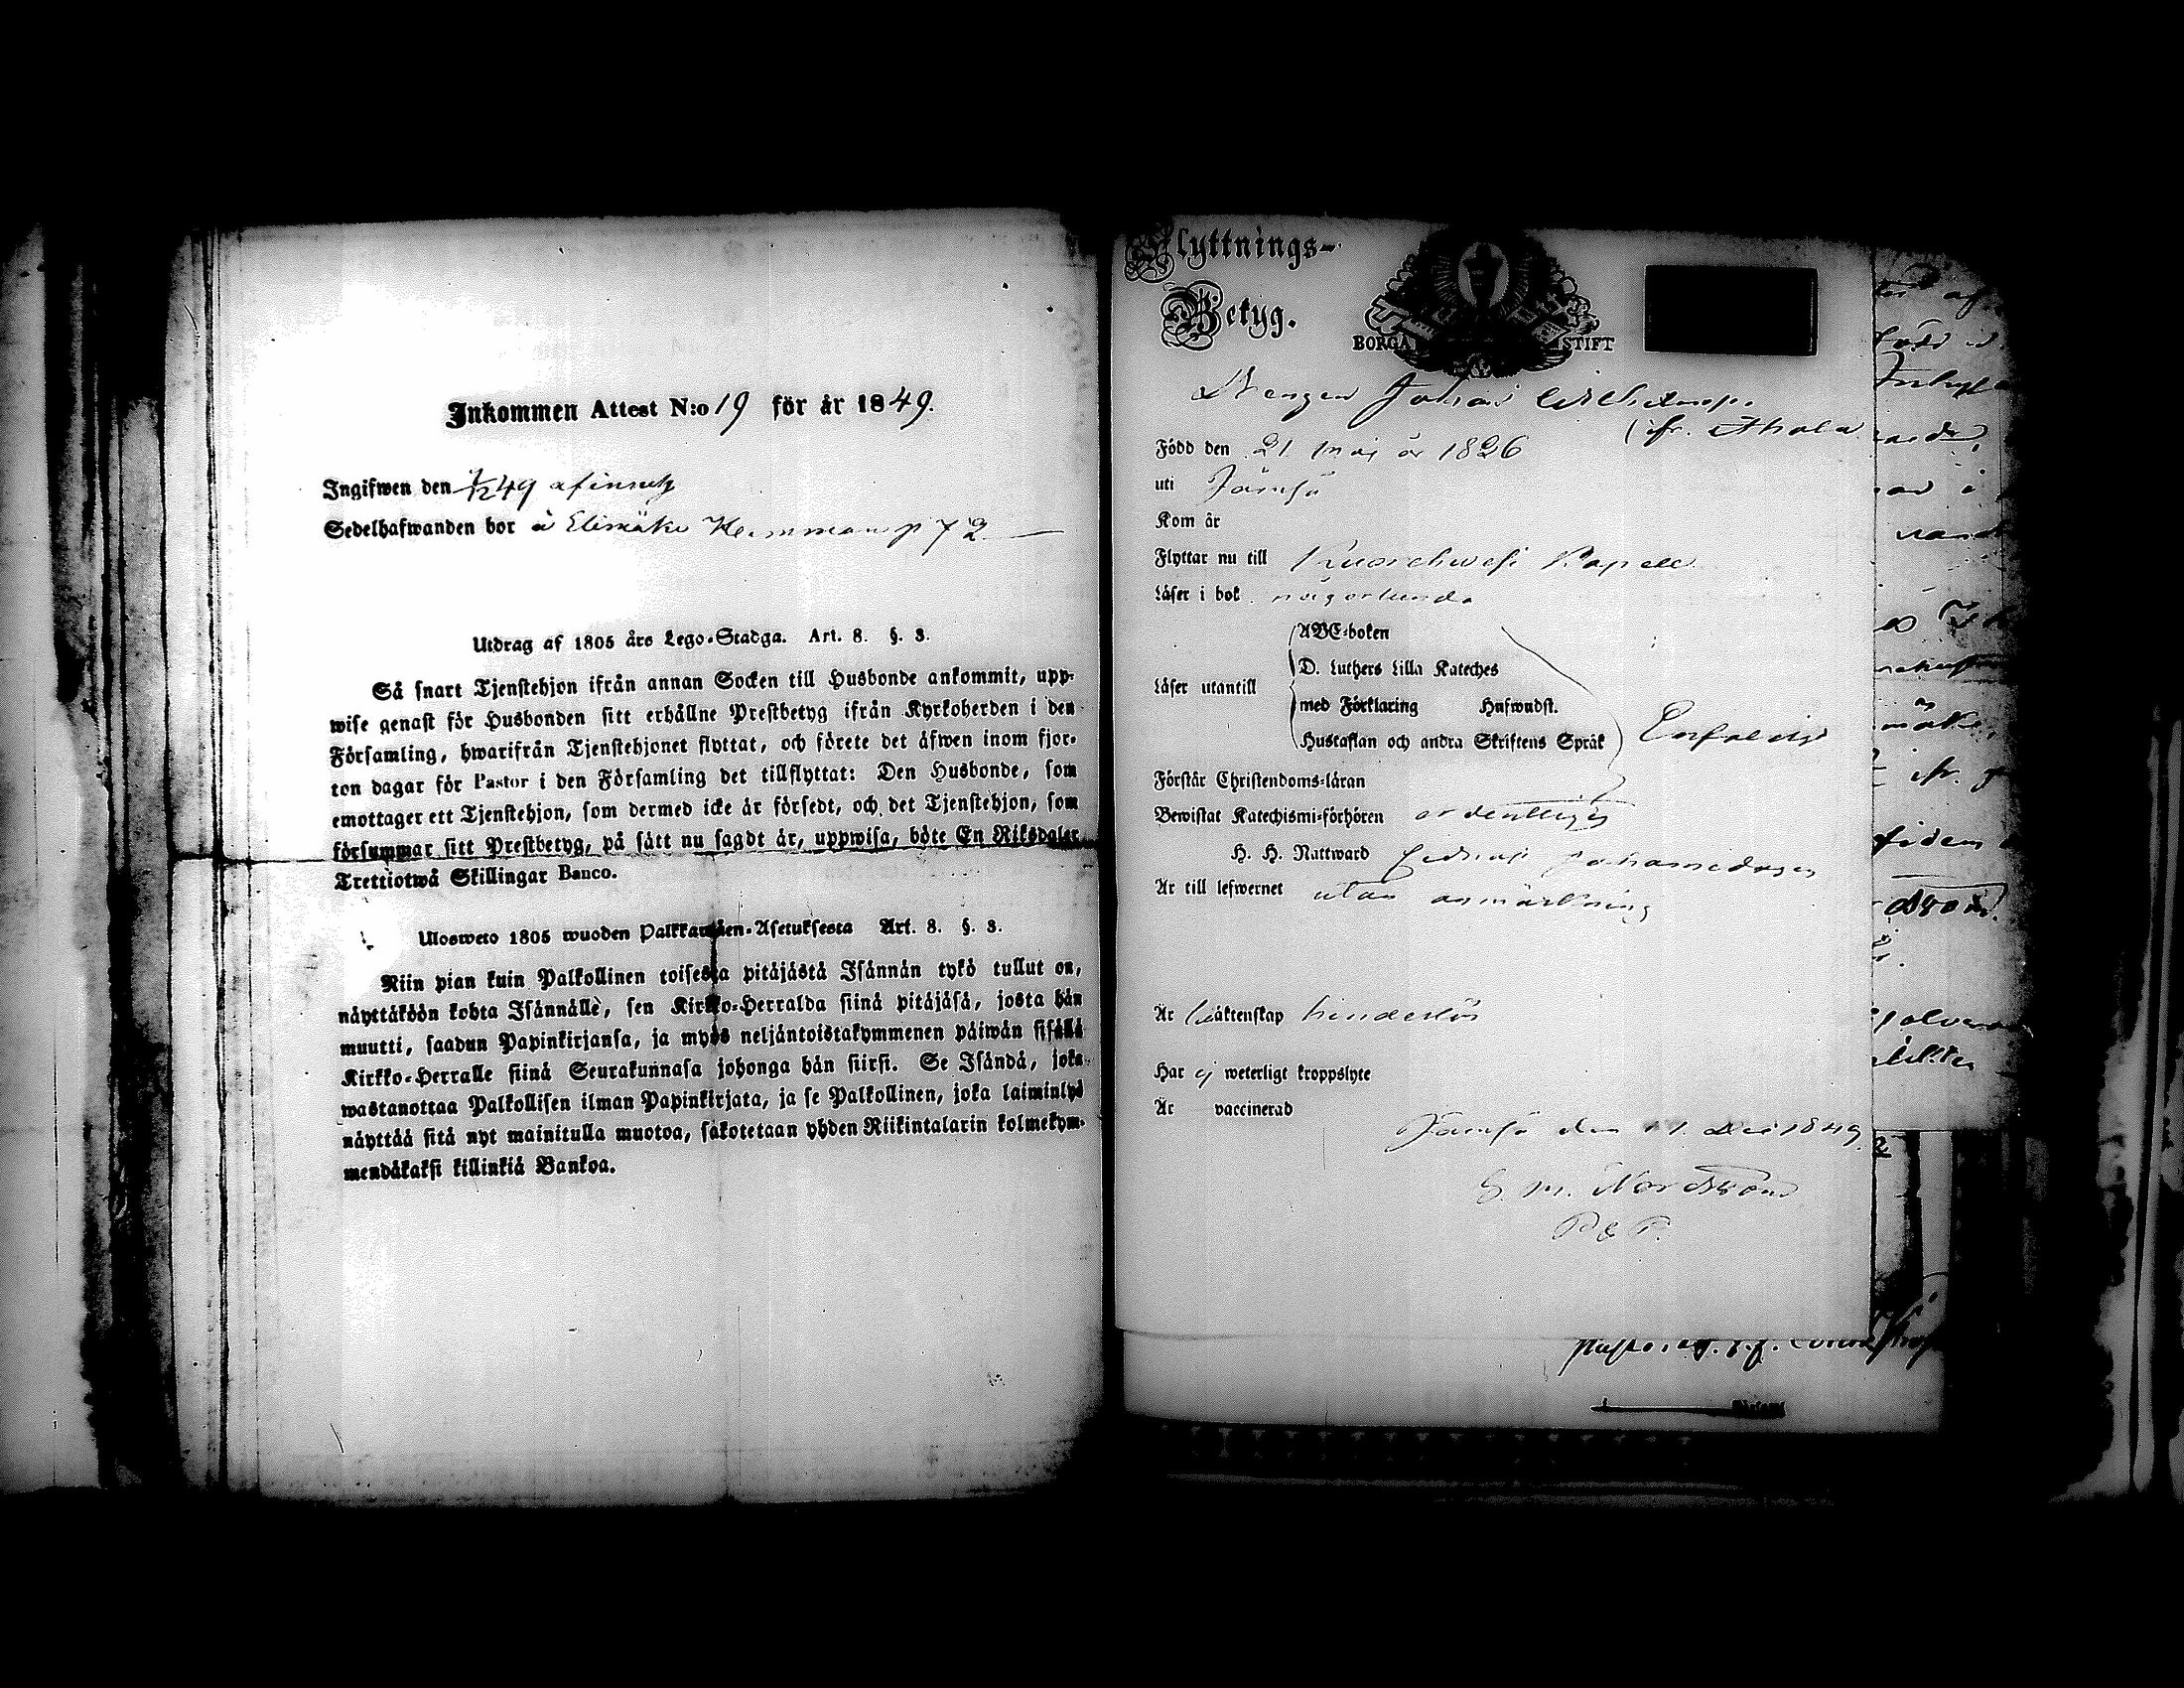 Inkommen Attest N:o 19 för år 1849.
Ingifwen den 7/12 49 af
Sedelhafwanden bor å Elimäki Hemman p 72
Utdrag af 1805 års Lego-Stadga. Art. 8. §. 3.
Så snart Tjenstehjon ifrån annan Socken till Husbonde ankommit, upp-
wise genast för Husbonden sitt erhållne Prestbetyg ifrån Kyrkoherden i den
Församling, hwarifrån Tjenstehjonet flyttat, och förete det äfwen inom fjor-
ton dagar för Pastor i den Församling det tillflyttat: Den Husbonde, som
emottager ett Tjenstehjon, som dermed icke är försedt, och det Tjenstehjon, som
försummar sitt Prestbetyg, på sätt nu sagdt är, uppwisa, böte En Riksdaler
Trettiotwå Skillingar Banco.
Ulosweto 1805 wuoden Palkkawäen-Asetuksesta Art. 8. §. 3.
Niin pian kuin Palkollinen toisesta pitäjästä Isännän tykö tullut on,
näyttäköön kohta Isännälle, sen Kirkko-Herralda siinä pitäjäsä, josta hän
muutti, saadun Papinkirjansa, ja myös neljäntoistakymmenen päiwän sisällä
Kirkko-Herralle siinä Seurakunnasa johonga hän siirsi. Se Isändä, joka
wastanottaa Palkollisen ilman Papinkirjata, ja se Palkollinen, joka laiminlyö
näyttää sitä nyt mainitulla muotoa, sakotetaan yhden Riikintalarin kolmekym-
mendäkaksi killinkiä Bankoa.
Flyttnings-
Betyg.
BORGÅ STIFT
Drengen Johan Wilhelmsson
(ifr. Ahola
Född den 21 maj år 1826
uti Jämsä
Kom år
Flyttar nu till Kuorehwesi Kapell
Läser i bok någorlunda
Läser utantill
ABC-boken
D. Luthers Lilla Kateches
med Förklaring Hufwudst.
Hustaflan och andra Skriftens Språk
Enfaldigt
Förstår Christendoms-läran
Bewistat Katechismi-förhören ordentligt
H. H. Nattward sednast Johannedagen
Är till lefwernet utan anmärkning
Är till äktenskap hinderlös
Har ej weterligt kroppslyte
Är vaccinerad
Jämsä den 1849
G. M. Nordström